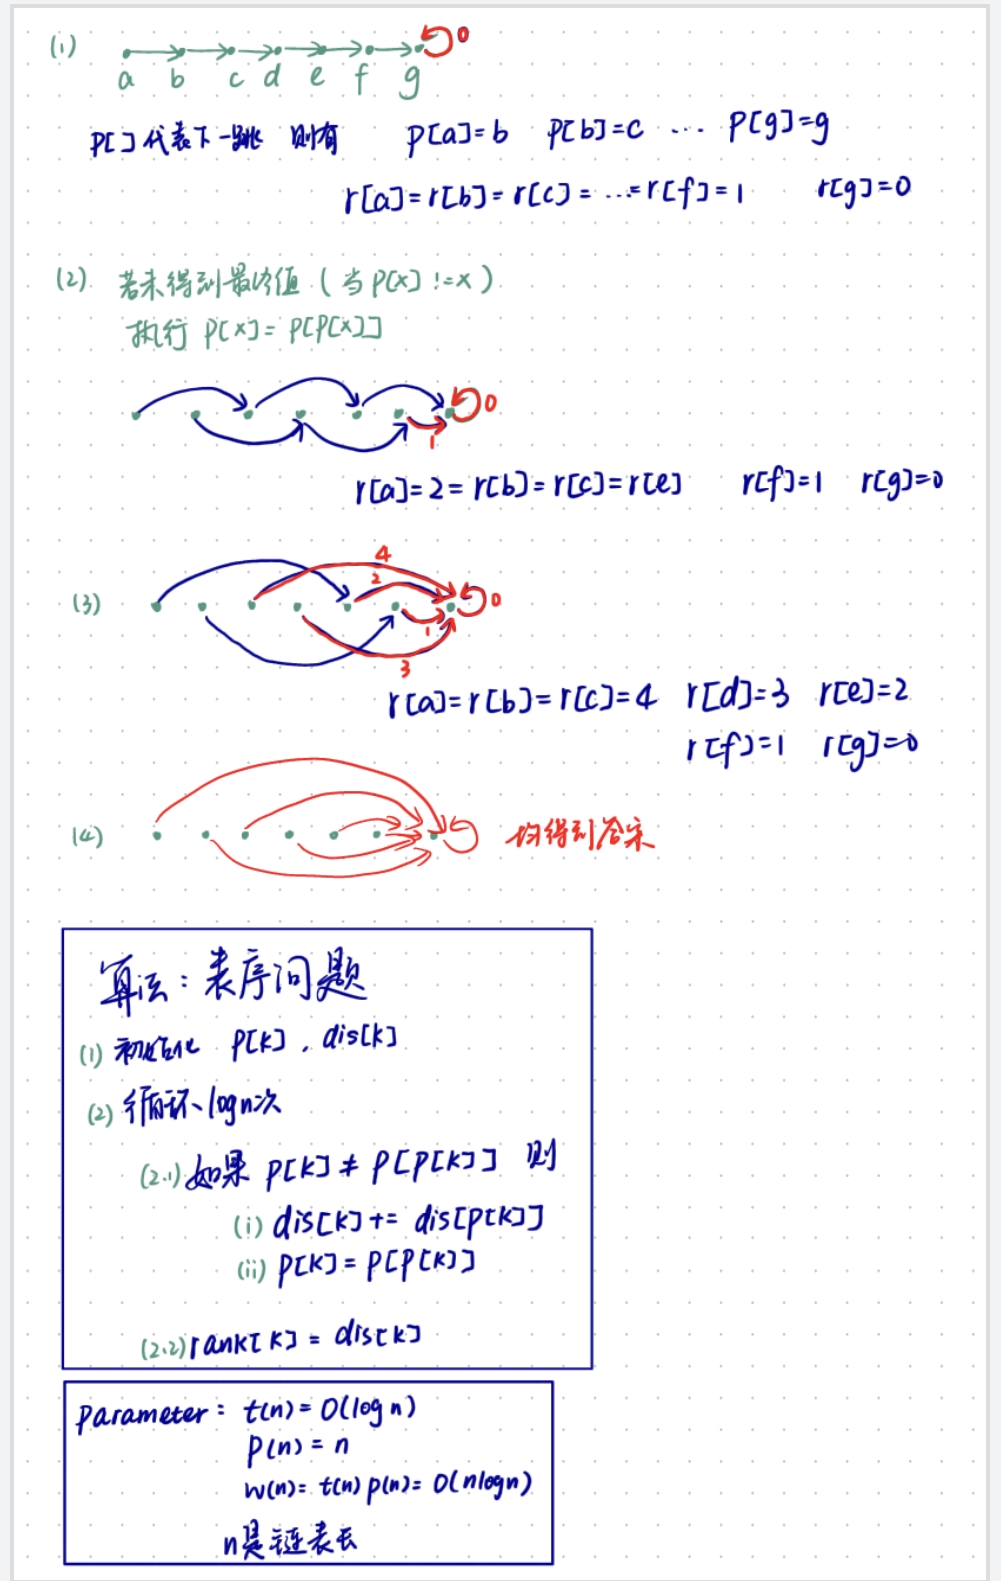 (1) 0
a b c d e f g
P[ ]代表下一跳 则有 P[a]=b P[b]=c ... P[g]=g
r[a]=r[b]=r[c]=...=r[f]=1 r[g]=0
(2) 若未得到最终值(当P[x]!=x)
执行 P[x]=P[P[x]]
0
1
r[a]=2=r[b]=r[c]=r[e] r[f]=1 r[g]=0
4
(3) 2 0
1
3
r[a]=r[b]=r[c]=4 r[d]=3 r[e]=2
r[f]=1 r[g]=0
(4) 均得到答案
算法:表序问题
(1) 初始化 P[k], dis[k]
(2) 循环logn次
(2.1) 如果 P[k]≠P[P[k]] 则
(i) dis[k]+= dis[P[k]]
(ii) P[k]=P[P[k]]
(2.2) rank[k] = dis[k]
parameter: t(n)=O(log n)
P(n)=n
w(n)=t(n)p(n)=O(nlogn)
n是链表长